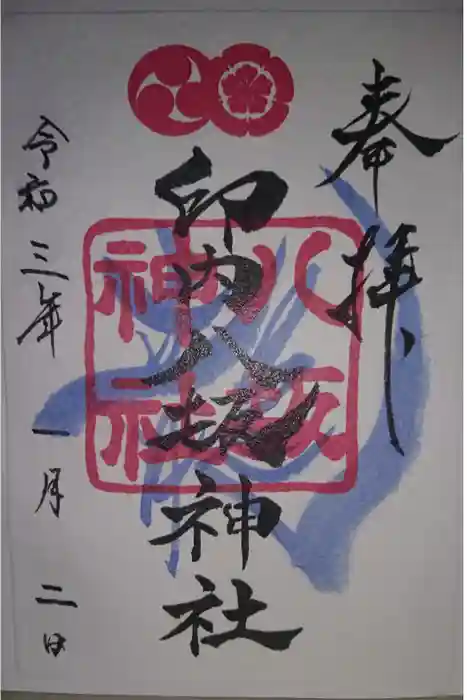 奉拝
印内八坂神社
八坂
神社
令和三年一月二日